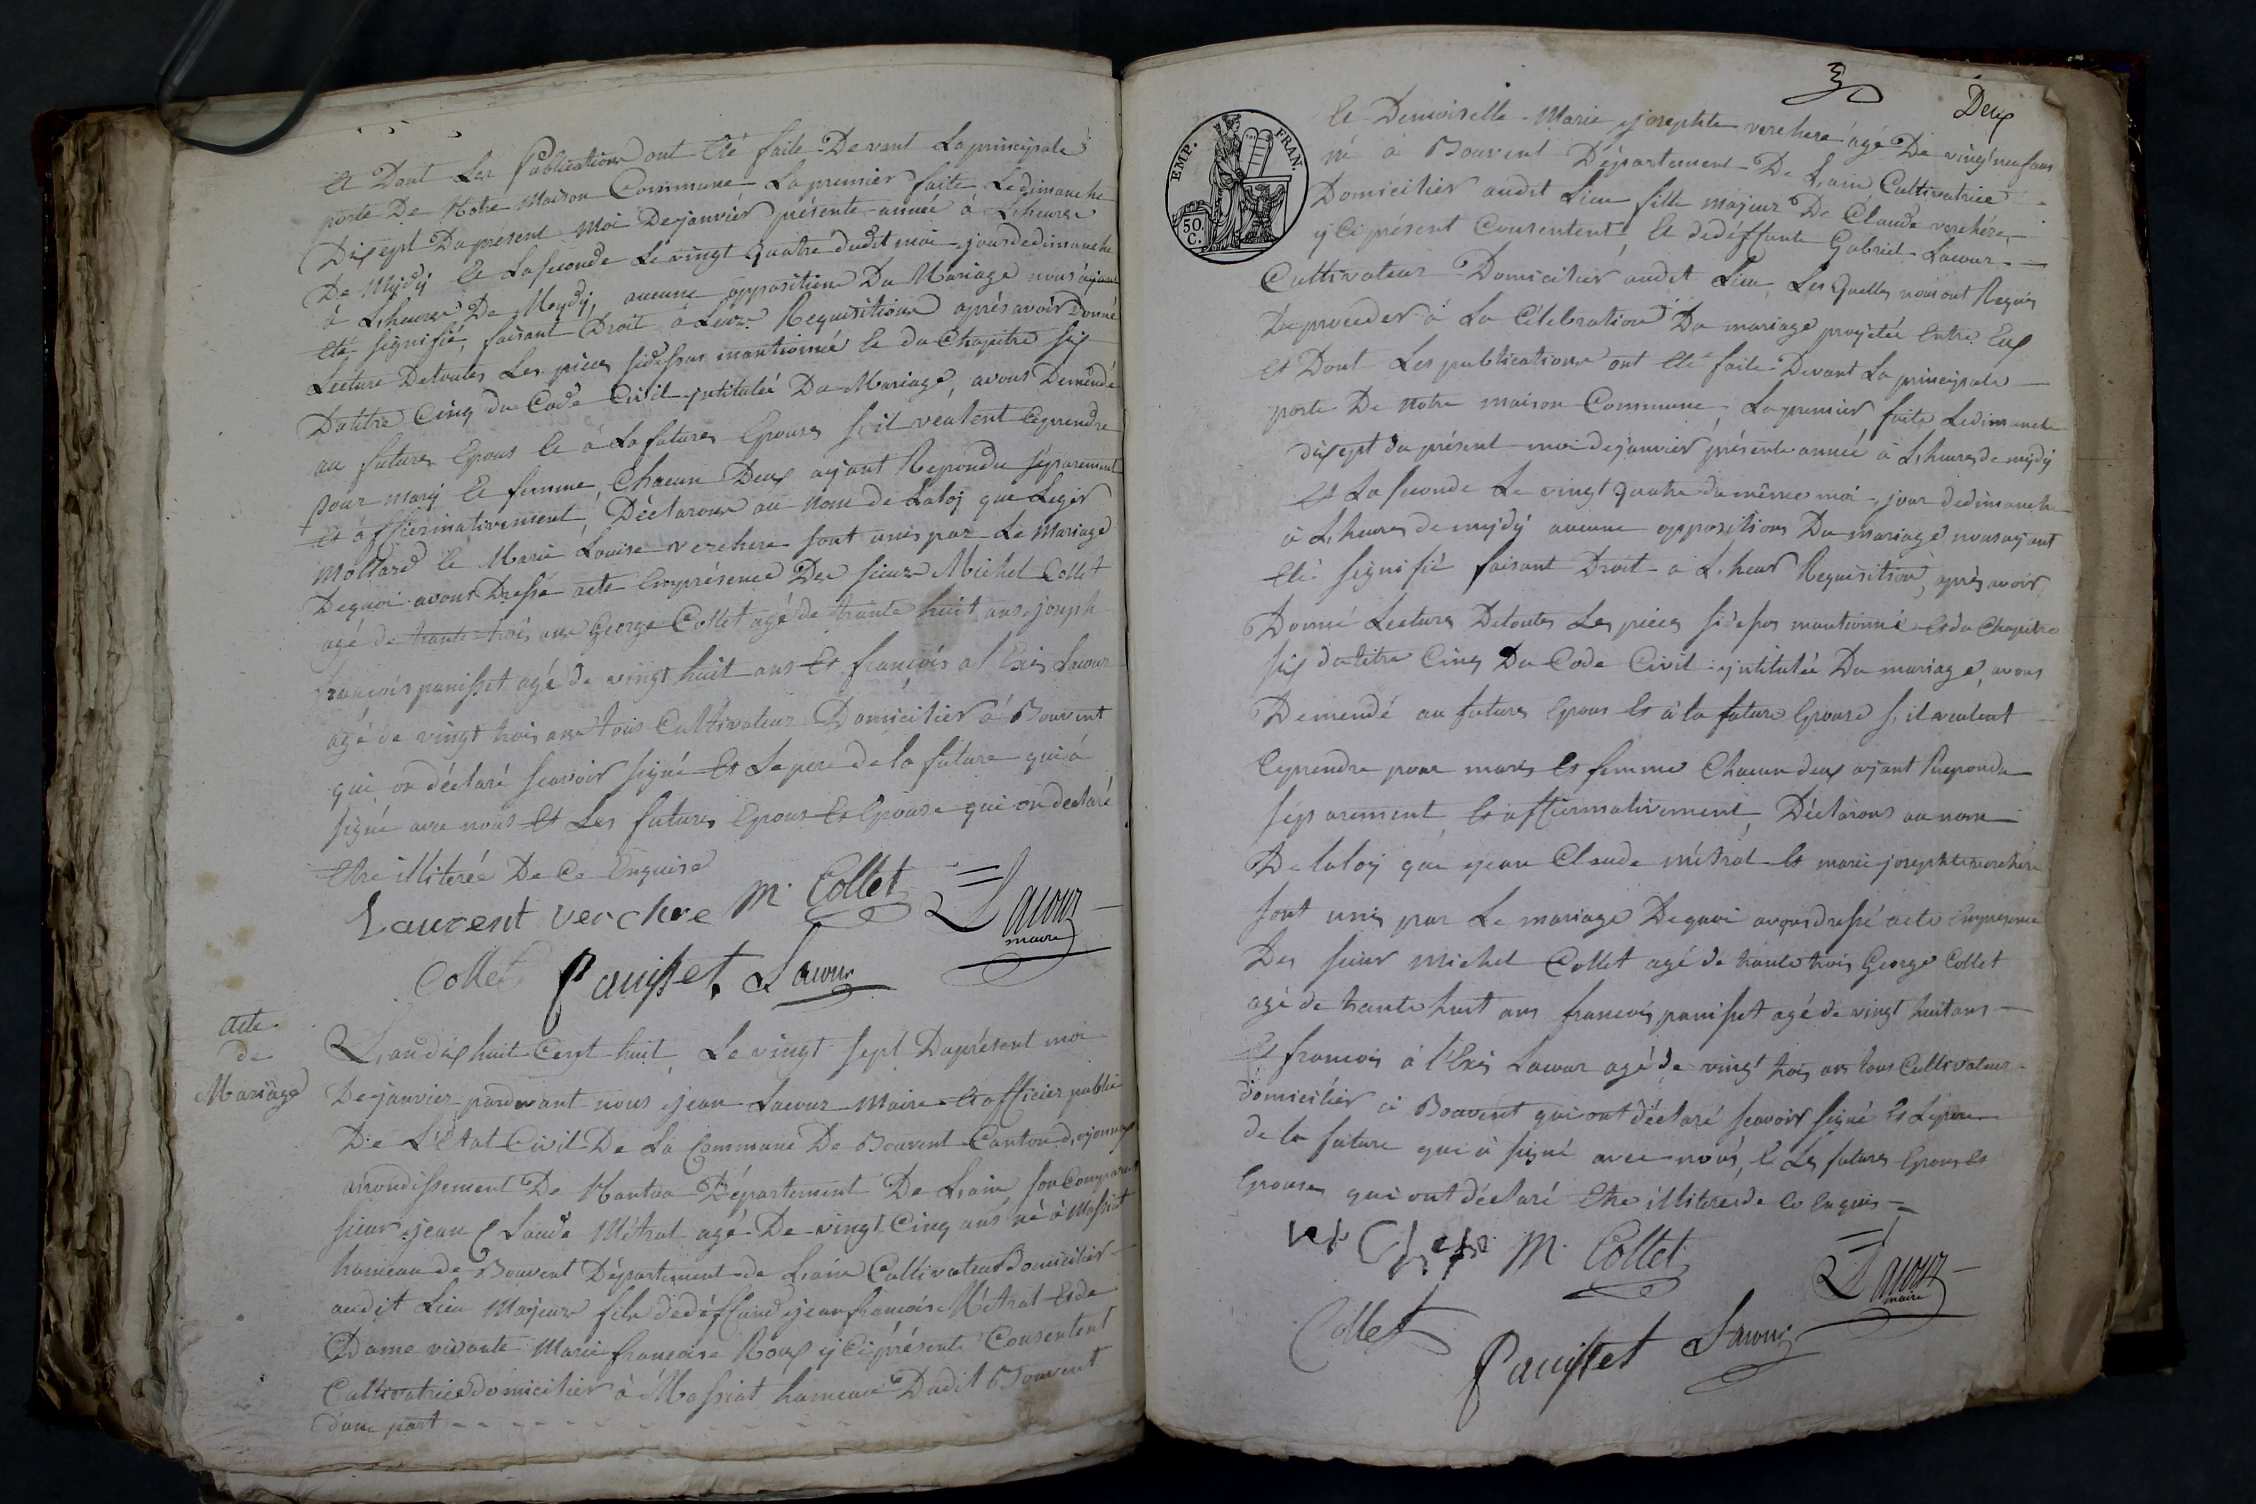 Et Dont Les Publications ont Eté faite Devant La principale
porte De Notre Maison Commune La premier faite Ledimanche
Dixsept Du present Moi Dejanvier présente année à Lheure
De Mydÿ Et La seconde Le vingt quatre dudit moi jourdedimanche
à Lheure De Mydÿ, aucune opposition Du Mariage nous ayant
Eté signifié, faisant Droit à Leur Requisition aprésavoir Donné
Lecture Detoutes Les pièces sidessus mantionné Et du Chapitre six
Dutitre Cinq du Code Civil yntitulée Du Mariage, avons Demendé
au future Epous Et à La future Epouse s'il veulent Ceprendre
pour marÿ Et femme, Chacun Deux ayant Repondu séparement
Et affirmativement, Déclarons au Nom de Laloÿ que Leger
Mollard Et Marie Louise verchere sont unis par Le Mariage
Dequoi avons Dressé acte Enprésence Des sieurs Michel Collet
agé de trante trois ans George Collet agé de trante huit ans joseph
françois panisset agé de vingt huit ans Et françois alExis Lacour
agé de vingt trois ans tous Cultivateur Domicilier à Bouvent
qui on déclaré scavoir signé Et Lepere de la future qui à
signé avec nous Et Les future Epous Et Epouse qui on déclaré
Etre illiterée De Ce Enquise
Laurent verchre M. Collet Lacour
maire
Collet Panisset Lacour
Acte
de
Mariage
L'andix huit Cent huit, Le vingt sept Duprésent moi
Dejanvier pardevant nous jean Lacour Maire Et officier public
De L'état Civil De La Commune De Bouvent Canton d'oyonnax
arrondissement De Nantua Département De Lain son Comparu
sieur jean Claude Métral agé De vingt Cinq ans né à Massiat
hameau de Bouvent Département de Lain Cultivateur Domicilier
audit Lieu Majeur fils dedéffund jean françois Métral Et de
Dame vivante Marie françoise Roux yCi présente Consentent
Cultivatrice domicilier à Massiat hameau Dudit Bouvent
dune part
3
Deux
EMP. FRAN.
50 C.
Et Demoiselle Marie josephte verchere âgé De vingt neuf ans
né à Bouvent Département De Lain Cultivatrice
Domicilier audit Lieu fille majeur De Claude verchére
yCi présent Consentent, Et dedéffunte Gabriel Lacour
Cultivateur Domicilier audit Lieu, Les Quelles nous ont Requis
De proceder à La Célébration Du mariage projetée Entre Eux
Et Dont Les publications ont Eté faite Devant La principale
porte De Notre maison Commune, La premier faite Ledimanche
dixsept du présent moi dejanvier présente année à Lheure de mydÿ
Et La seconde Le vingt quatre du même moi jour dedimanche
à Lheure de mydÿ aucune opposition Du mariage nous ayant
Eté signifié faisant Droit à Lheur Requisition, après avoir
Donné Lecture Detoutes Les pièces sidessus mantionné et du Chapitre
six dutitre Cinq Du Code Civil yntitulée Du mariage, avons
Demendé au future Epous Et à la future Epouse s'il veulent
Ceprendre pour maris Et femme Chacun deux ayant Reponda
séparement Et affirmativement, Déclarons au nom
De laloÿ que jean Claude métral Et marie josephte verchere
sont unis par Le mariage Dequoi avons dressé acte Enpresence
Des sieur Michel Collet agé de trante trois George Collet
agé de trante huit ans françois panisset agé de vingt huit ans
Et françois àlExis Lacour agé de vingt trois ans tous Cultivateur
domicilier à Bouvent qui ont déclaré scavoir signé Et Lepere
de la future qui à signé avec nous, Et Les future Epous Et
Epouse qui ont déclaré Etre illiterés de Ce Enquis
M. Collet Lacour
maire
Collet
Panisset Lacour